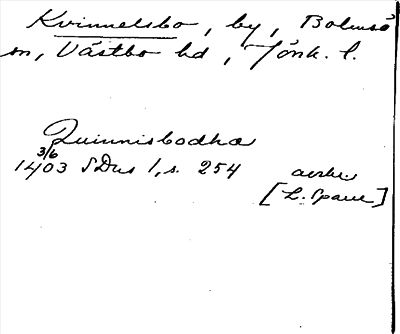 Kvinnelsbo, by, Bolmsö
sn, Västbo hd, Jönk. l.
Quinnisbodha
3/6
1403 SDns 1, s. 254 avskr.
[L. Spaue]